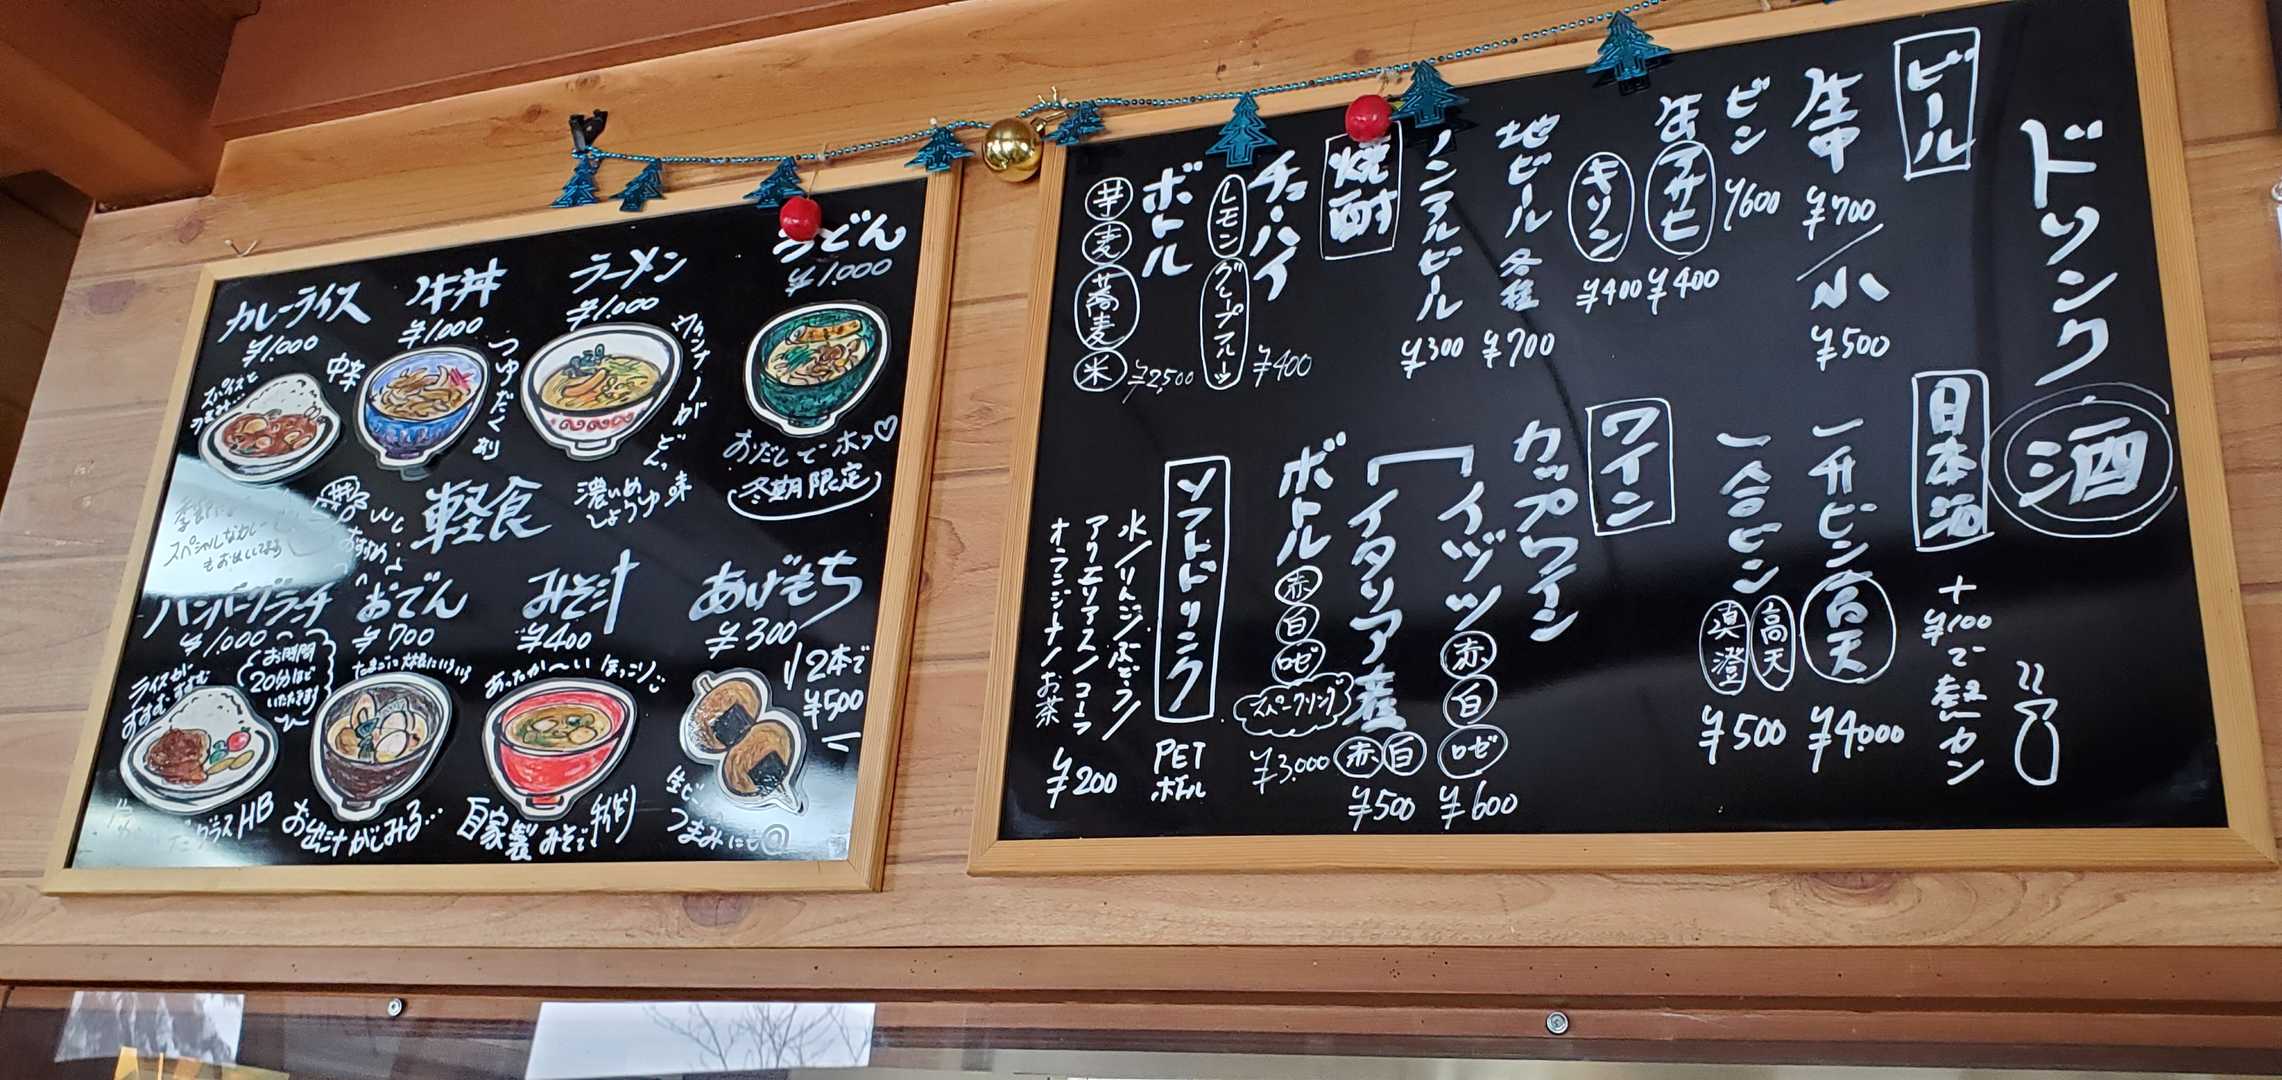 カレーライス
¥1,000
スパイスと
うまみ…
牛丼
¥1,000
中辛
つゆだく
ラーメン
¥1,000
濃いめ
しょうゆ味
うどん
¥1,000
おだしでホッ♡
冬期限定
軽食
スペシャルなカレー
ハンバーグランチ
¥1,000
ライスが
すすむすすむ
お時間
20分ほど
いただきます
デミグラスHB
おでん
¥700
お出汁がしみる…
みそ汁
¥400
あったか〜いほっこり
自家製みそで手作り
あげもち
¥300
2本で
¥500
つまみにも◎
ドリンク
酒
ビール
生中
¥700
/小
¥500
ビン
¥600
缶
アサヒ
¥400
キリン
¥400
地ビール各種
¥700
ノンアルビール
¥300
焼酎
チューハイ
レモン
グレープフルーツ
¥400
ボトル
芋
麦
蕎麦
米
¥2,500
日本酒
+¥100で熱カン
一升ビン
高天
¥4,000
一合ビン
高天
真澄
¥500
ワイン
カップワイン
イヅツ
赤
白
ロゼ
¥600
イタリア産
赤
白
¥500
ボトル
赤
白
ロゼ
スパークリング
¥3,000
ソフトドリンク
PET
ボトル
水/りんご/ぶどう/
アクエリアス/コーラ
オランジーナ/お茶
¥200